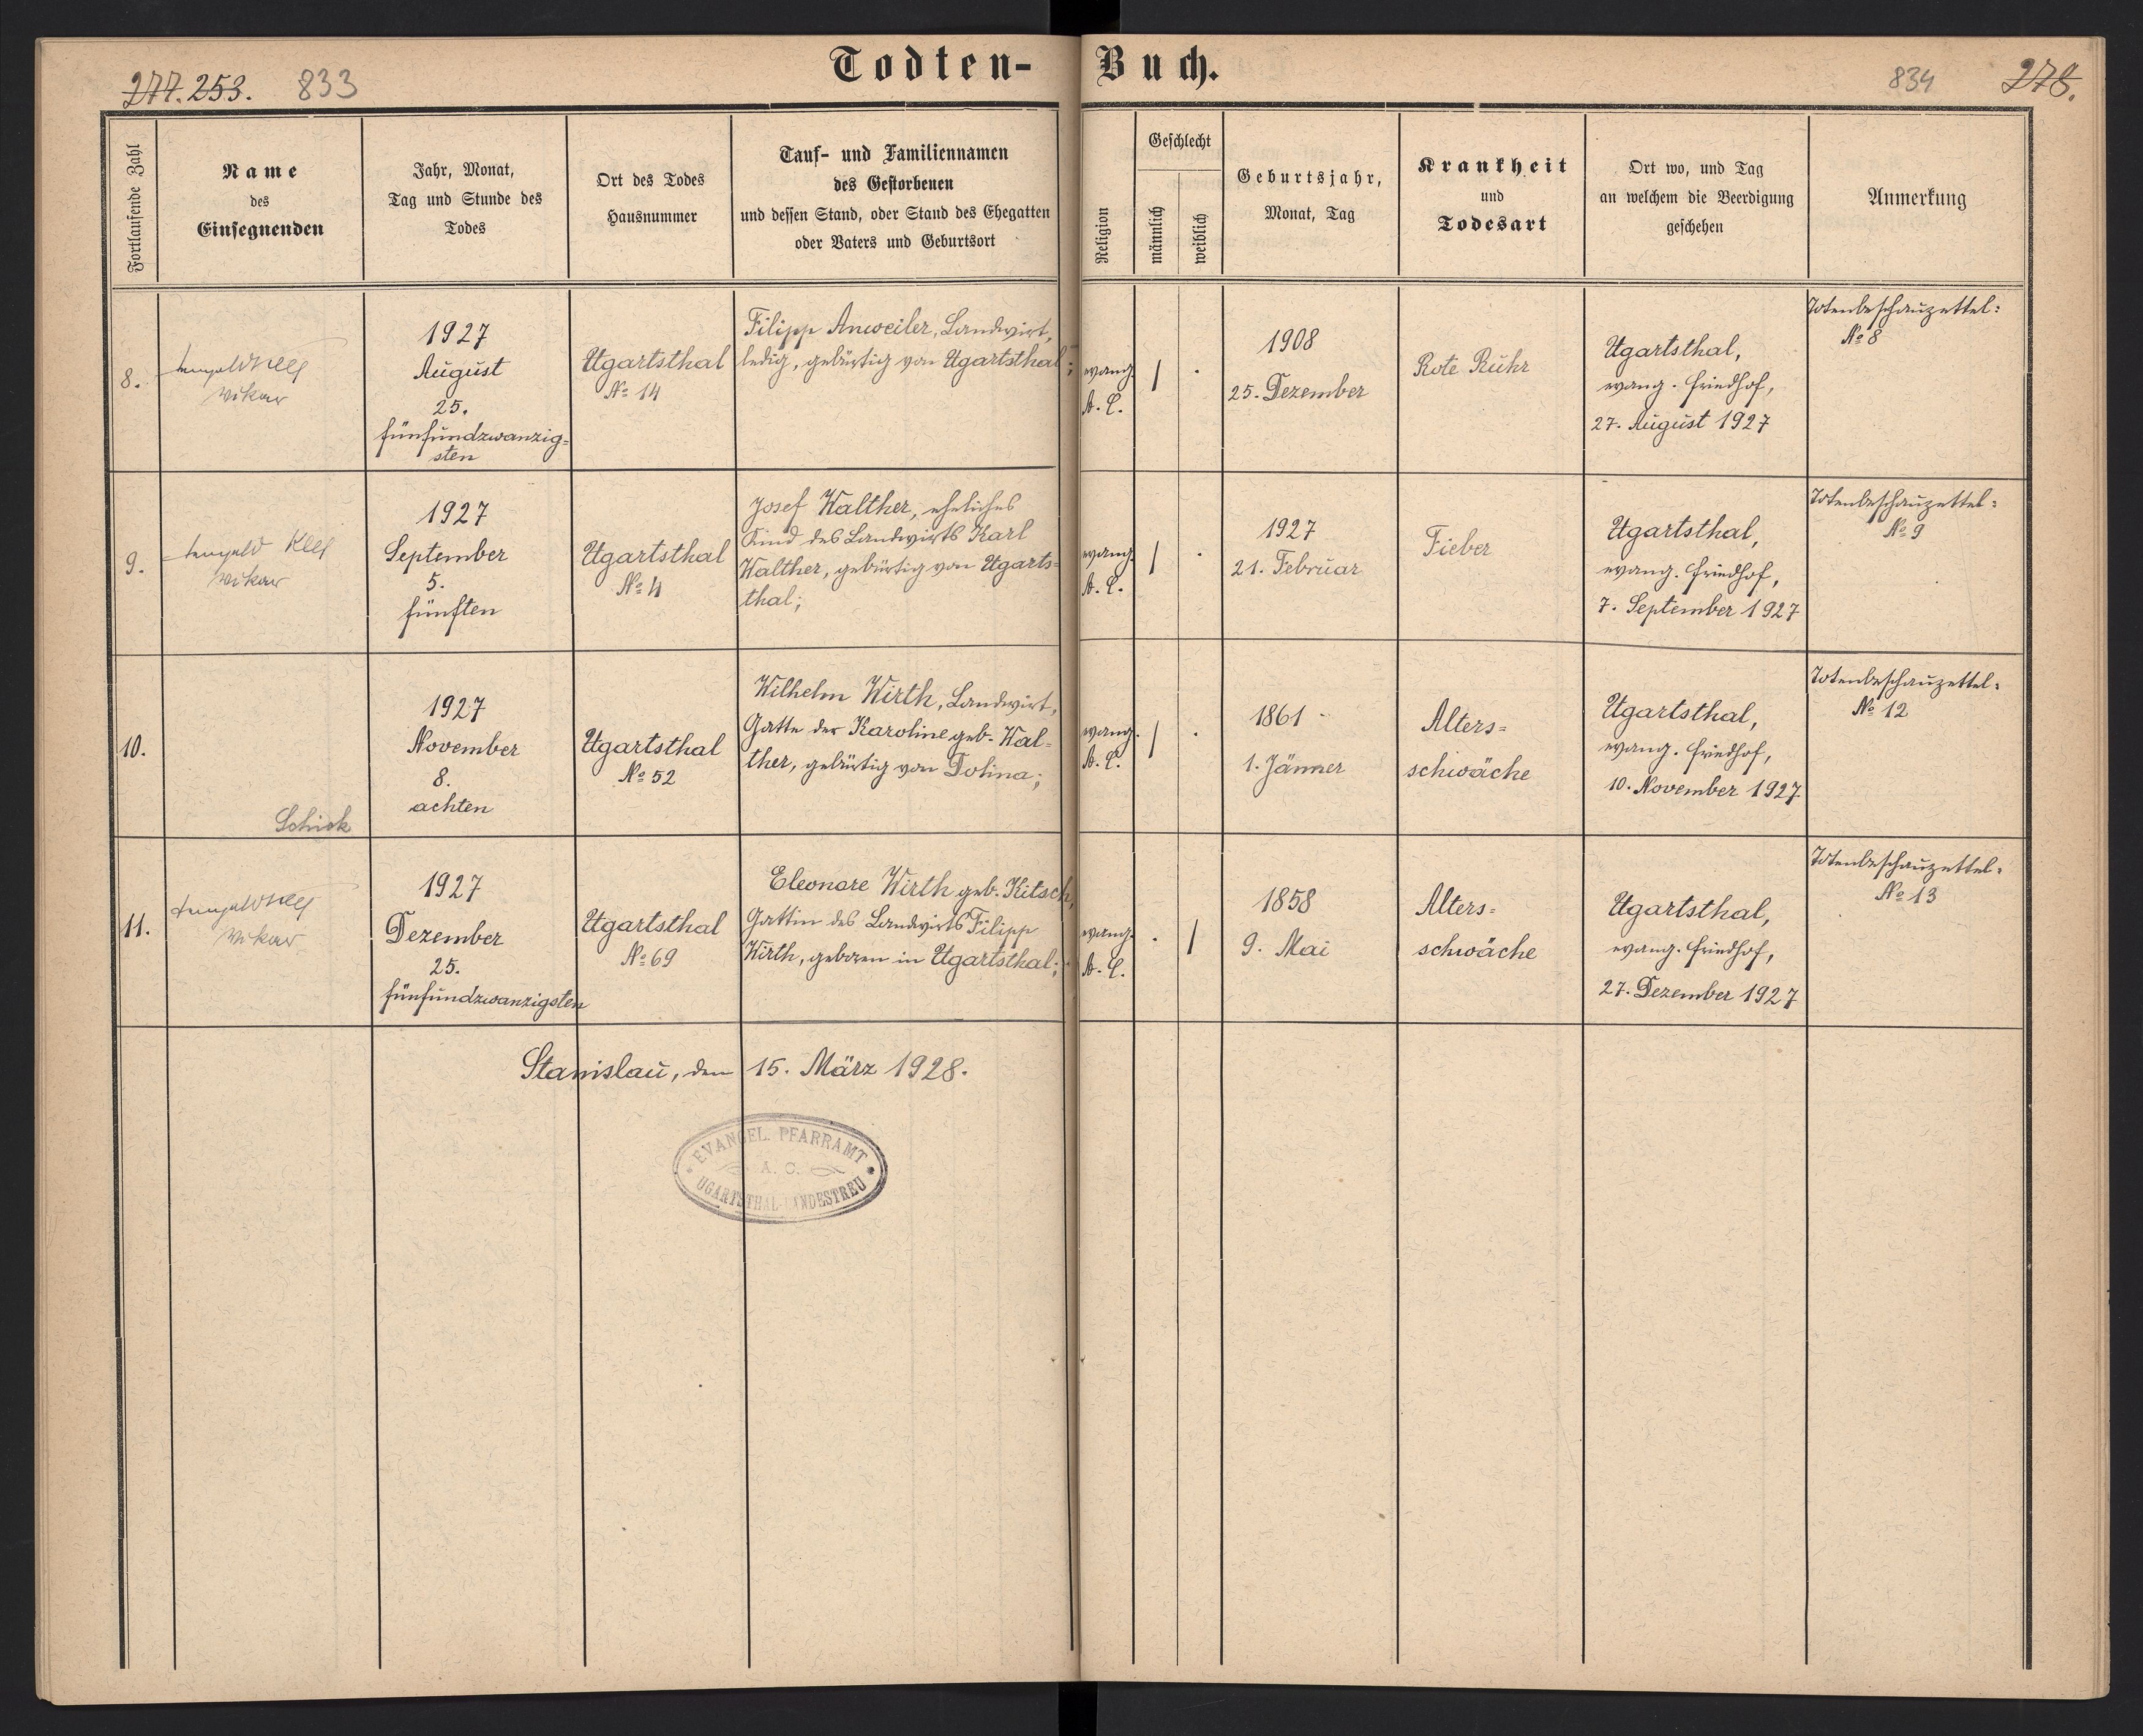 Todten-Buch.
277. 253. 833
834 278.
Fortlaufende Zahl
Name
des
Einsegnenden
Jahr, Monat,
Tag und Stunde des
Todes
Ort des Todes
Hausnummer
Tauf- und Familiennamen
des Gestorbenen
und dessen Stand, oder Stand des Ehegatten
oder Vaters und Geburtsort
Religion
Geschlecht
männlich
weiblich
Geburtsjahr,
Monat, Tag
Krankheit
und
Todesart
Ort wo, und Tag
an welchem die Beerdigung
geschehen
Anmerkung
8.
Vikar
1927
August
25.
fünfundzwanzig=
sten
Ugartsthal
No 14
Filipp Anweiler, Landwirt,
ledig, gebürtig von Ugartsthal;
evang.
A. C.
1908
25. Dezember
Rote Ruhr
Ugartsthal,
evang. Friedhof,
27. August 1927
Totenbeschauzettel:
No 8
9.
Vikar
1927
September
5.
fünften
Ugartsthal
No 4
Josef Walther, eheliches
Kind des Landwirts Karl
Walther, gebürtig von Ugarts=
thal;
evang.
A. C.
1927
21. Februar
Fieber
Ugartsthal,
evang. Friedhof,
7. September 1927
Totenbeschauzettel:
No 9
10.
Schick
1927
November
8.
achten
Ugartsthal
No 52
Wilhelm Wirth, Landwirt,
Gatte der Karoline geb. Wal=
ther, gebürtig von Dolina;
evang.
A. C.
1861
1. Jänner
Alters=
schwäche
Ugartsthal,
evang. Friedhof,
10. November 1927
Totenbeschauzettel:
No 12
11.
Vikar
1927
Dezember
25.
fünfundzwanzigsten
Ugartsthal
No 69
Eleonore Wirth geb. Kitsch,
Gattin des Landwirts Filipp
Wirth, geboren in Ugartsthal;
evang.
A. C.
1858
9. Mai
Alters=
schwäche
Ugartsthal,
evang. Friedhof,
27. Dezember 1927
Totenbeschauzettel:
No 13
Stanislau, den 15. März 1928.
EVANGEL. PFARRAMT
A. C.
UGARTSTHAL-LANDESTREU